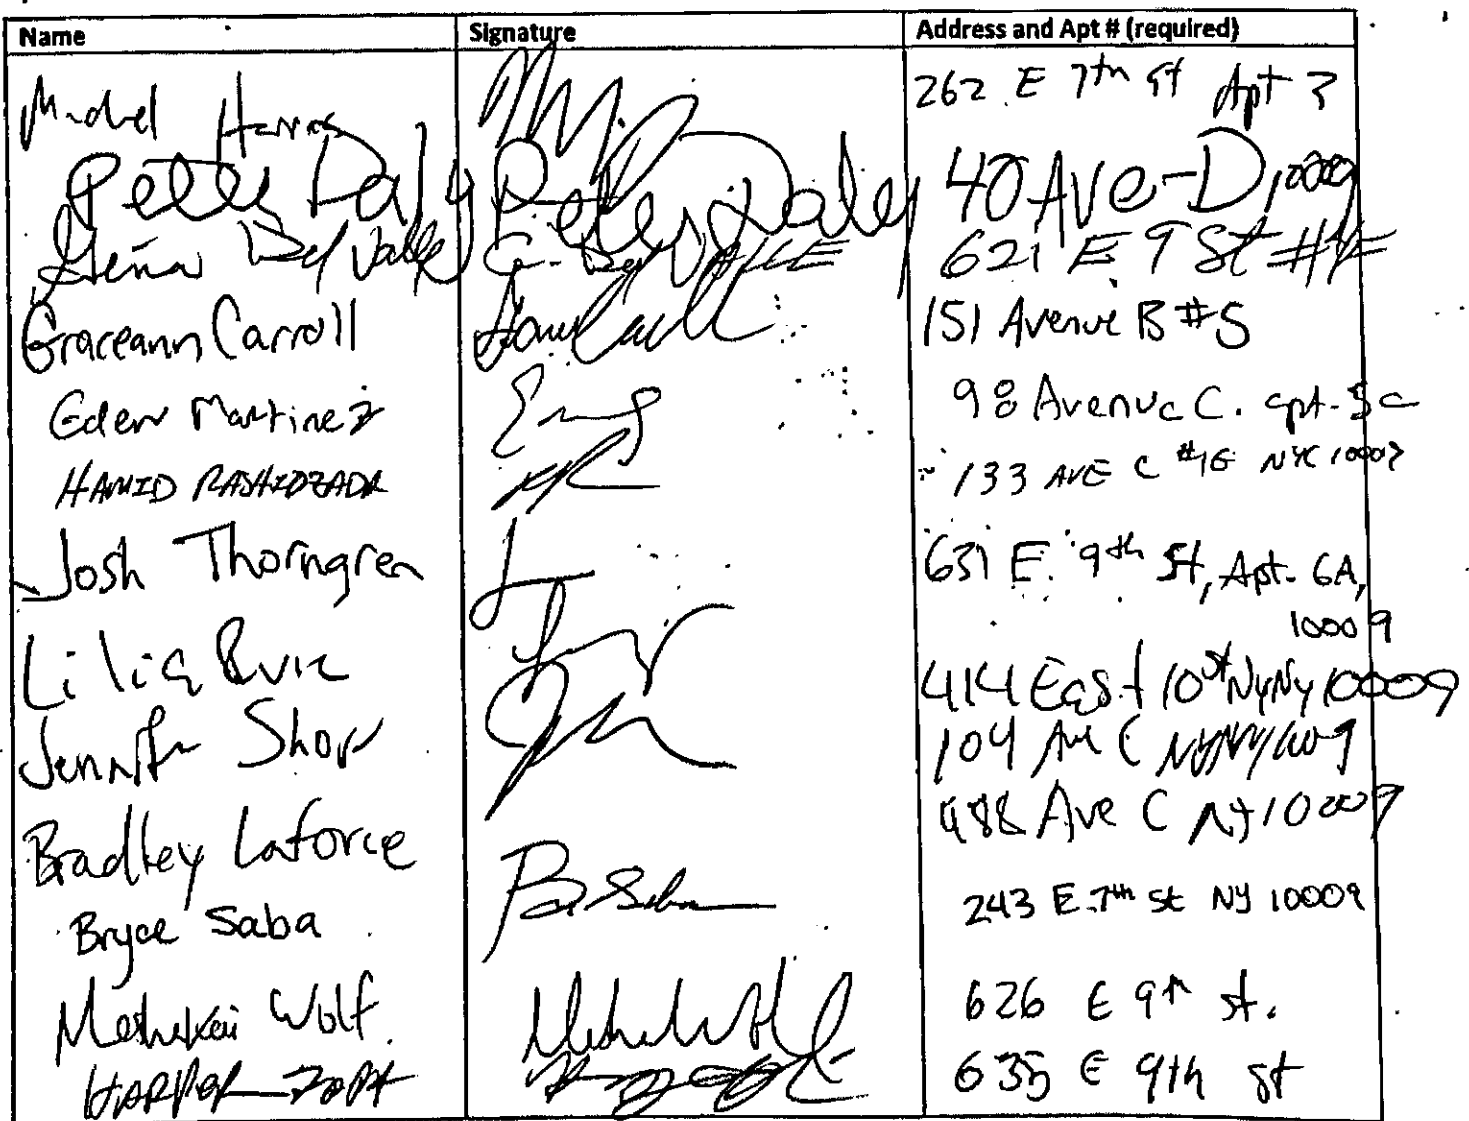 Name Signature Address and Apt # (required)
Michael Harris 262 E 7th St Apt 3
Peter Daly Peter Daly 40 Ave-D 10009
Geña Del Valle G. Del Valle 621 E 9 St #
Graceann Carroll 151 Avenue B #5
Eden Martinez 98 Avenue C. apt. 5c
HAMID RASHIDZADA 133 AVE C #1E NYC 10009
Josh Thorngren 631 E. 9th St, Apt. 6A,
10009
Lilia Ruiz 414 East 10st Ny Ny 10009
Jennifer Shor 104 Ave C NY NY 10009
Bradley Laforce Ave C NY 10009
Bryce Saba 243 E. 7th St NY 10009
Wolf 626 E 9th st.
635 E 9th St